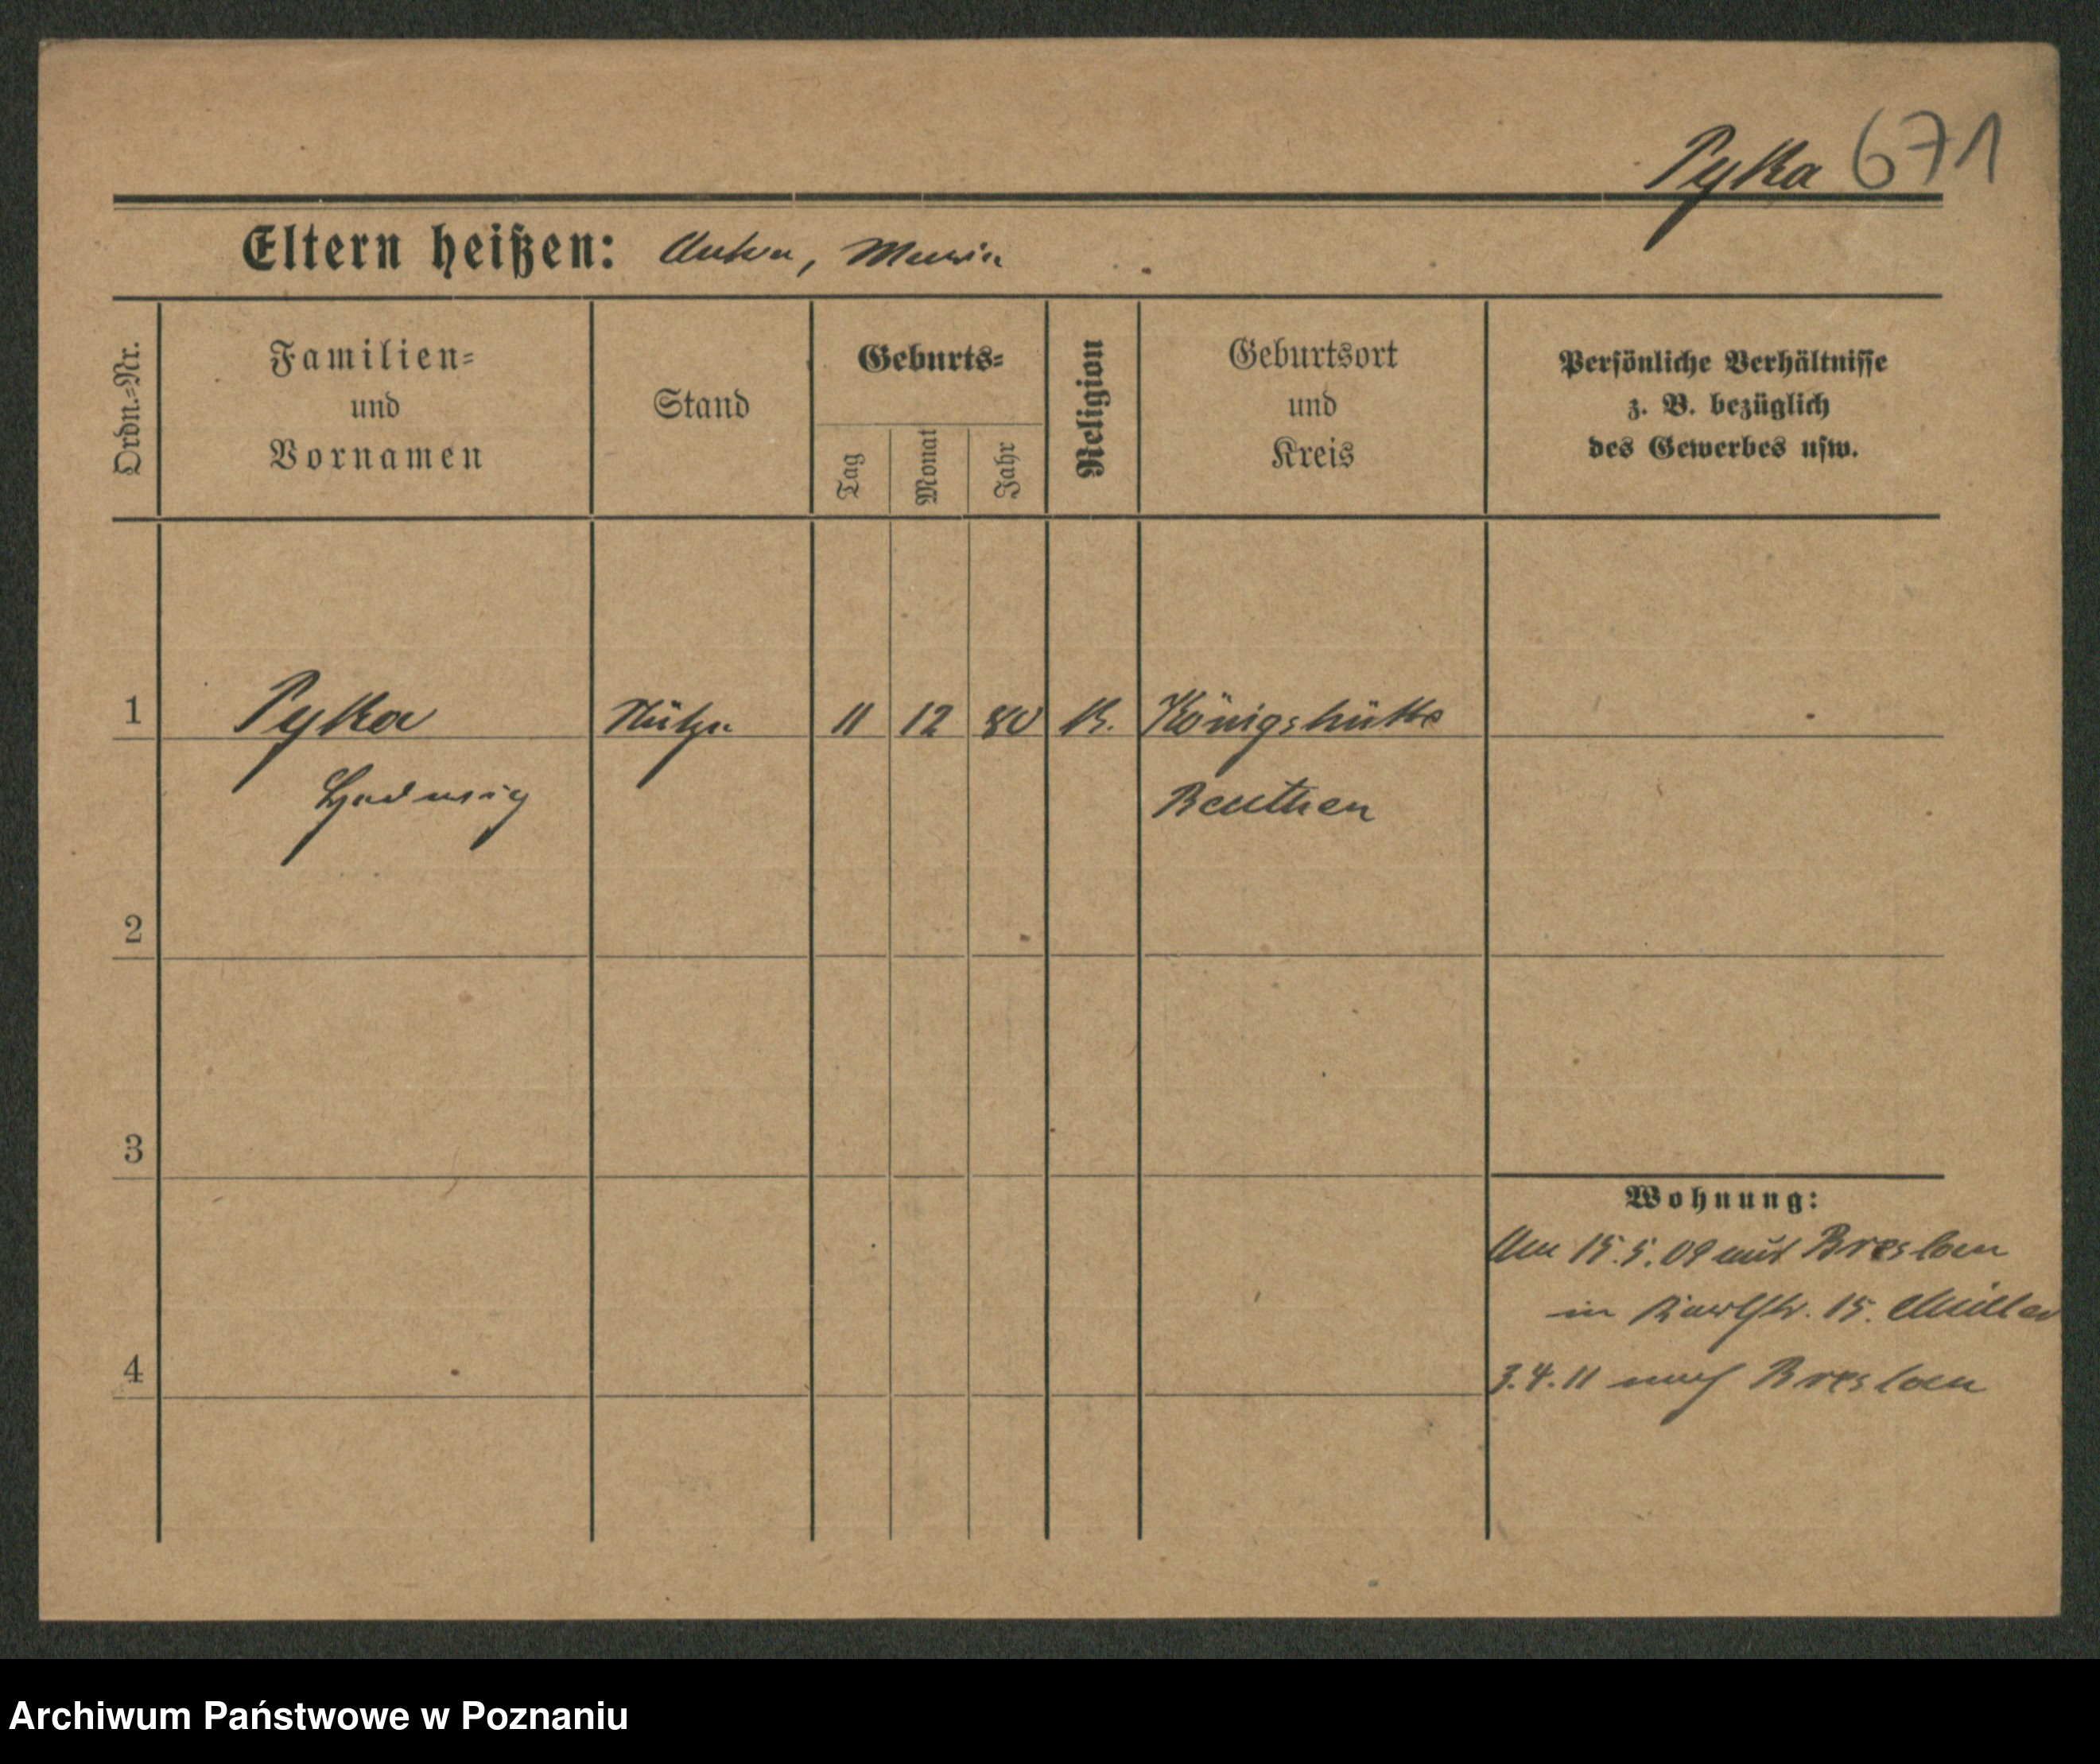 Pyka 671
Eltern heißen: Anton, Maria
Ordn.=Nr.
Familien=
und
Vornamen
Stand
Geburts=
Tag
Monat
Jahr
Religion
Geburtsort
und
Kreis
Persönliche Verhältnisse
z. B. bezüglich
des Gewerbes usw.
1 Pyka Stütze 11 12 80 k. Königshütte
Hedwig Beuthen
2
3
Wohnung:
Am 15.5.09 aus Breslau
in Karlstr. 15. Müller
4 3.4.11 nach Breslau
Archiwum Państwowe w Poznaniu